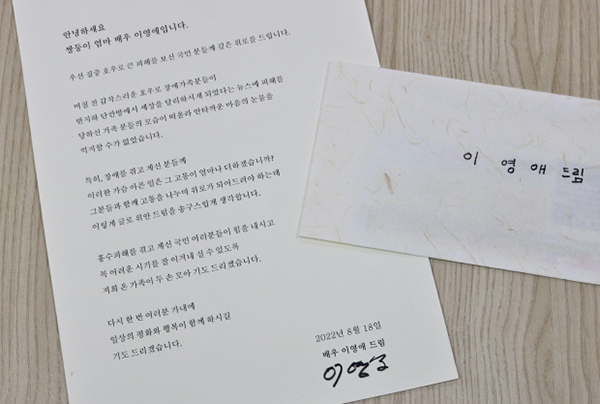 안녕하세요
쌍둥이 엄마 배우 이영애입니다.
우선 집중 호우로 큰 피해를 보신 국민 분들께 깊은 위로를 드립니다.
며칠 전 갑작스러운 호우로 장애가족분들이
반지하 단칸방에서 세상을 달리하시게 되었다는 뉴스에 피해를
당하신 가족 분들의 모습이 떠올라 안타까운 마음의 눈물을
억지할 수가 없었습니다.
특히, 장애를 겪고 계신 분들께
이러한 가슴 아픈 일은 그 고통이 얼마나 더하겠습니까?
그분들과 함께 고통을 나누며 위로가 되어드려야 하는데
이렇게 글로 위안 드림을 송구스럽게 생각합니다.
홍수피해를 겪고 계신 국민 여러분들이 힘을 내시고
꼭 어려운 시기를 잘 이겨내 실 수 있도록
저희 온 가족이 두 손 모아 기도 드리겠습니다.
다시 한 번 여러분 가내에
일상의 평화와 행복이 함께 하시길
기도 드리겠습니다.
2022년 8월 18일
배우 이영애 드림
이영애
이 영 애 드림